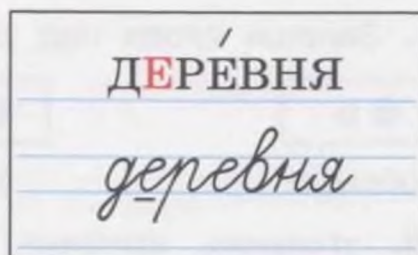 ДЕРЕ́ВНЯ
деревня